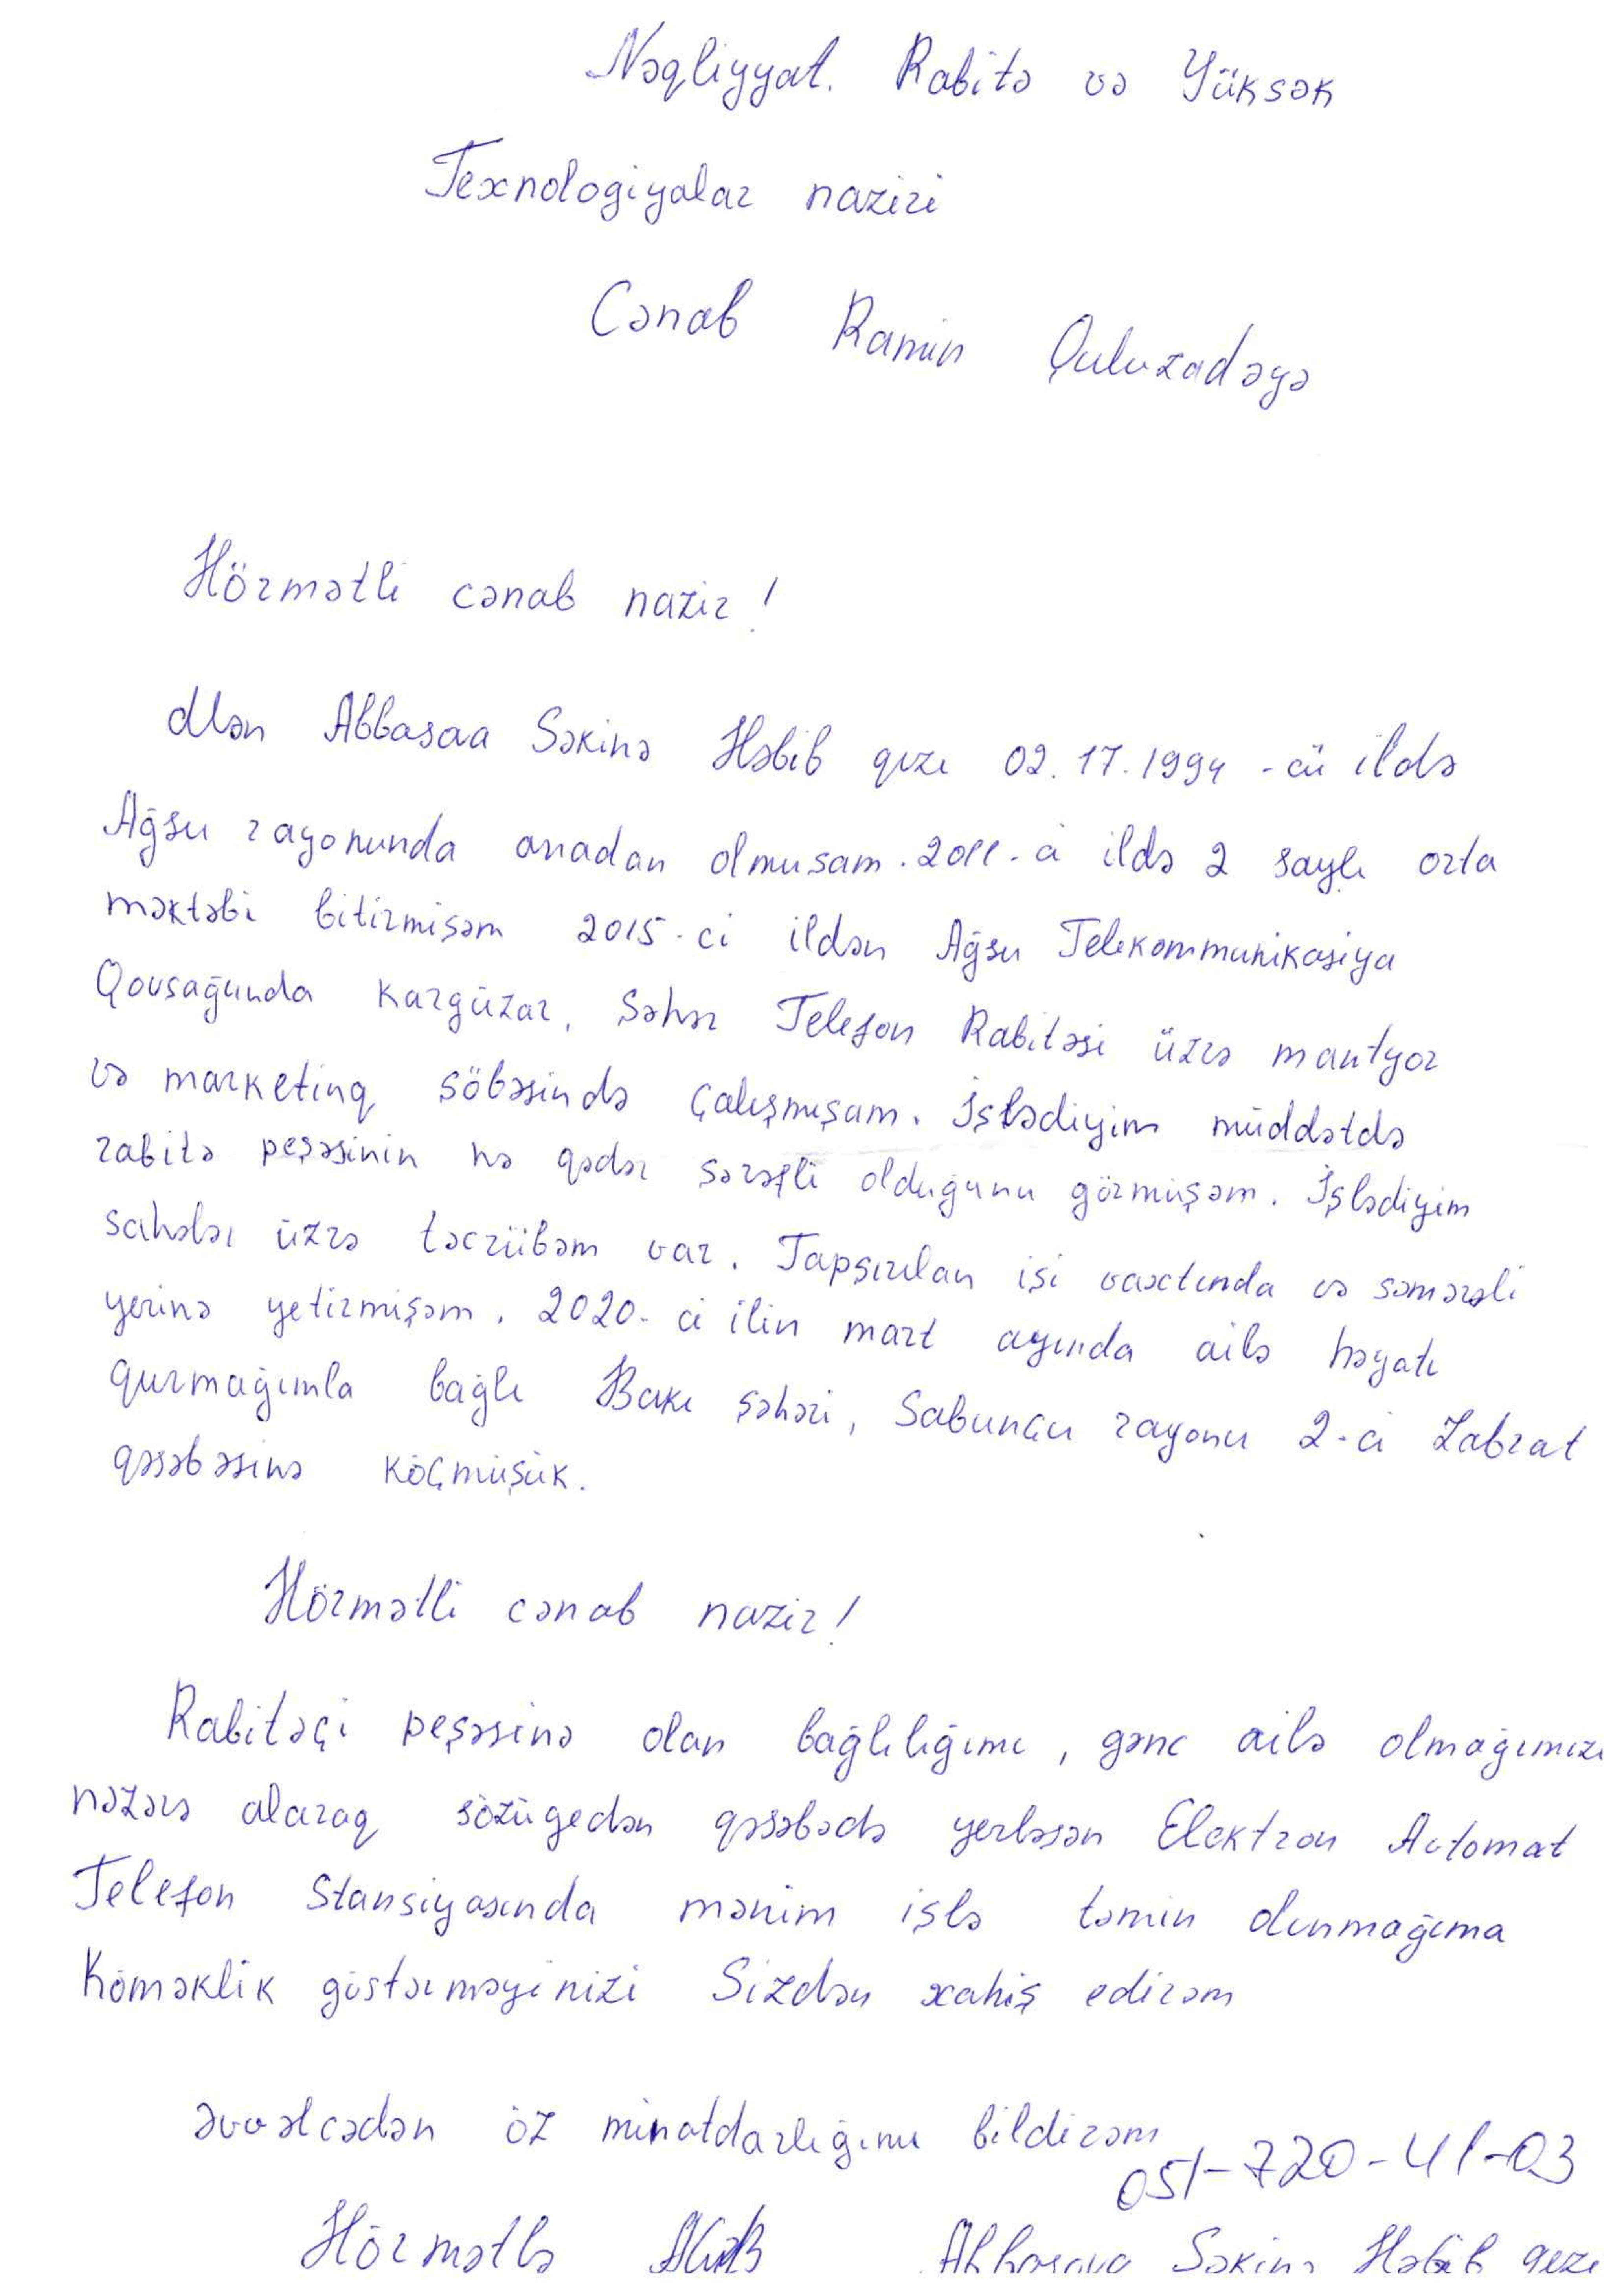 Nəqliyyat. Rabitə və Yüksək
Texnologiyalar naziri
Cənab Ramin Quluzadəyə
Hörmətli cənab nazir!
Mən Abbasova Səkinə Həbib qızı 02.17.1994-cü ildə
Ağsu rayonunda anadan olmusam. 2011-ci ildə 2 saylı orta
məktəbi bitirmişəm 2015-ci ildən Ağsu Telekommunikasiya
Qovsağunda Kargüzar, Səhər Telefon Rabitəsi üzrə mantyor
və marketinq söbəsində çalışmışam. İşlədiyim müddətdə
rabitə peşəsinin nə qədər şərəfli olduğunu görmüşəm. İşlədiyim
sahələr üzrə təcrübəm var. Tapsırılan isi vaxtında və səmərəli
yerinə yetirmişəm. 2020-ci ilin mart ayında ailə həyatı
qurmağımla bağlı Bakı şəhəri, Sabunçu rayonu 2-ci Zabrat
qəsəbəsinə köçmüşük.
Hörmətli cənab nazir!
Rabitəçi peşəsinə olan bağlılığımı, gənc ailə olmağımızı
nəzərə alaraq sözügedən qəsəbədə yerləsən Elektron Avtomat
Telefon Stansiyasında mənim islə təmin olunmağıma
Köməklik göstərməyinizi Sizdən xahiş edirəm
əvvəlcədən öz minatdarlığımı bildirəm
051-720-41-03
Hörmətlə Abbasova Səkinə Həbib qızı